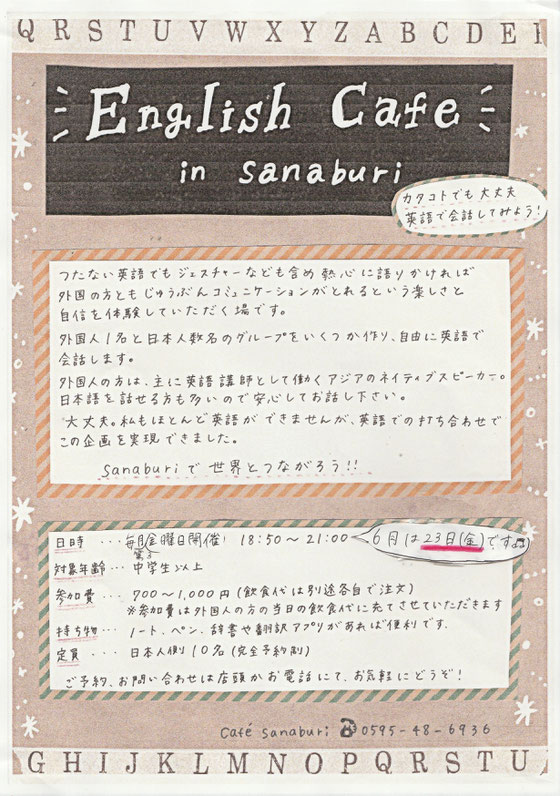 Q R S T U V W X Y Z A B C D E
English Cafe
in sanaburi
カタコトでも大丈夫
英語で会話してみよう!
つたない英語でもジェスチャーなども含め熱心に語りかければ
外国の方ともじゅうぶんコミュニケーションがとれるという楽しさと
自信を体験していただく場です。
外国人1名と日本人数名のグループをいくつか作り、自由に英語で
会話します。
外国人の方は、主に英語講師として働くアジアのネイティブスピーカー。
日本語を話せる方も多いので安心してお話し下さい。
大丈夫。私もほとんど英語ができませんが、英語での打ち合わせで
この企画を実現できました。
sanaburiで世界とつながろう!!
日時 ・・・ 毎月第3金曜日開催! 18:50〜21:00 6月は23日(金)です
対象年齢 ・・・ 中学生以上
参加費 ・・・ 700〜1,000円(飲食代は別途各自で注文)
※参加費は外国人の方の当日の飲食代に充てさせていただきます
持ち物 ・・・ ノート、ペン、辞書や翻訳アプリがあれば便利です.
定員 ・・・ 日本人側10名(完全予約制)
ご予約、お問い合わせは店頭かお電話にて、お気軽にどうぞ!
Café sanaburi ☎0595-48-6936
G H I J K L M N O P Q R S T U